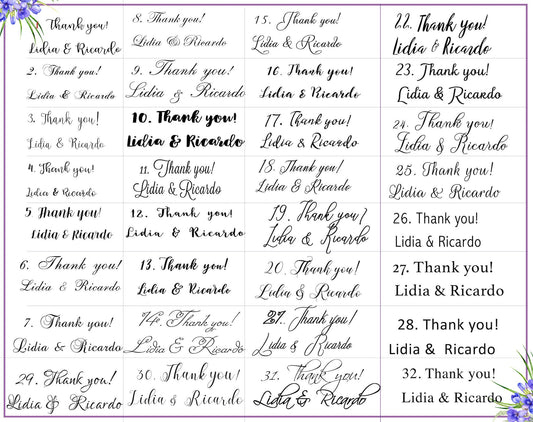 Thank you!
Lidia & Ricardo
2. Thank you!
Lidia & Ricardo
3. Thank you!
Lidia & Ricardo
4. Thank you!
Lidia & Ricardo
5 Thank you!
Lidia & Ricardo
6. Thank you!
Lidia & Ricardo
7. Thank you!
Lidia & Ricardo
29. Thank you!
Lidia & Ricardo
8. Thank you!
Lidia & Ricardo
9. Thank you!
Lidia & Ricardo
10. Thank you!
Lidia & Ricardo
11. Thank you!
Lidia & Ricardo
12. Thank you!
Lidia & Ricardo
13. Thank you!
Lidia & Ricardo
14. Thank you!
Lidia & Ricardo
30. Thank you!
Lidia & Ricardo
15. Thank you!
Lidia & Ricardo
16. Thank you!
Lidia & Ricardo
17. Thank you!
Lidia & Ricardo
18. Thank you!
Lidia & Ricardo
19. Thank you!
Lidia & Ricardo
20. Thank you!
Lidia & Ricardo
21. Thank you!
Lidia & Ricardo
31. Thank you!
Lidia & Ricardo
22. Thank you!
Lidia & Ricardo
23. Thank you!
Lidia & Ricardo
24. Thank you!
Lidia & Ricardo
25. Thank you!
Lidia & Ricardo
26. Thank you!
Lidia & Ricardo
27. Thank you!
Lidia & Ricardo
28. Thank you!
Lidia & Ricardo
32. Thank you!
Lidia & Ricardo